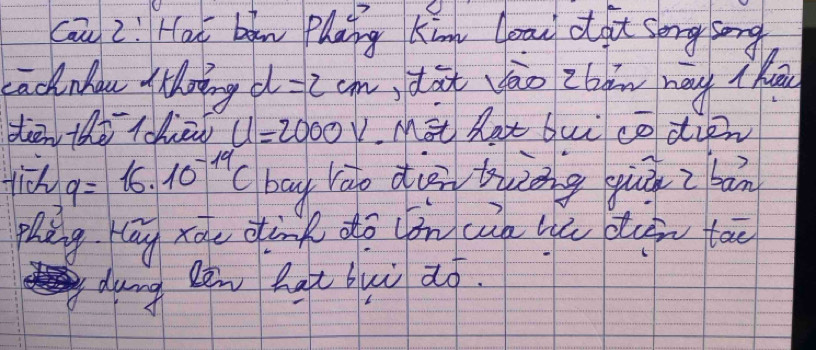 Câu 2: Hai bản phẳng kim loại đặt song song
cách nhau 1 khoảng d = 2 cm, đặt vào 2 bản này 1 hiệu
điện thế 1 chiều U = 2000 V. Một hạt bụi có điện
tích q = 16.10⁻¹⁹ C bay vào điện trường giữa 2 bản
phẳng. Hãy xác định độ lớn của lực điện tác
dụng lên hạt bụi đó.